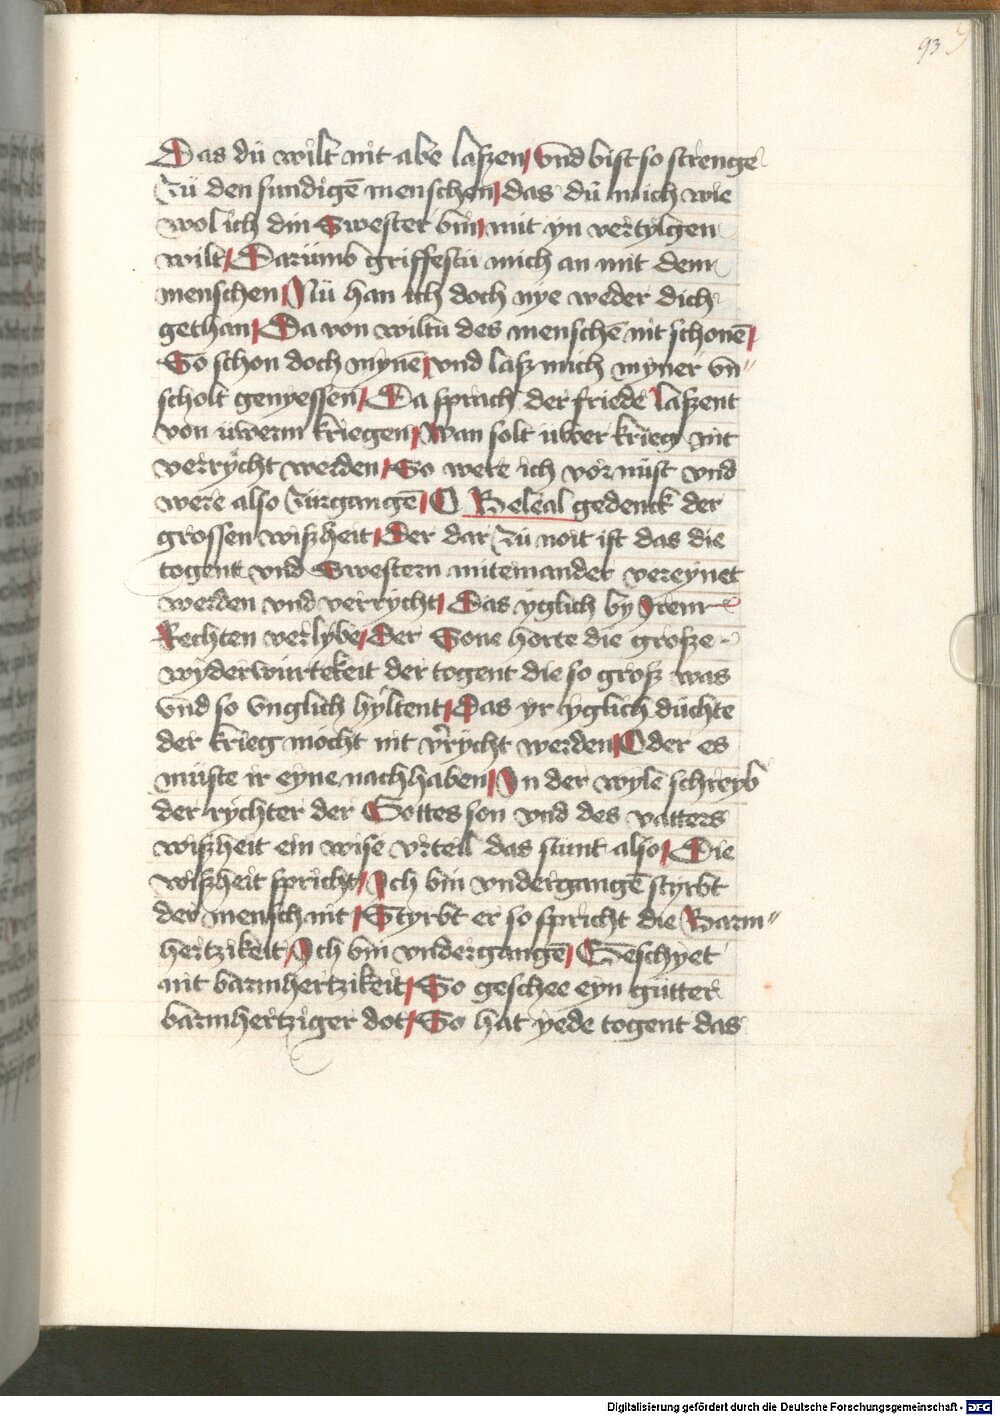 93
Das dü wilt nit abe laszen vnd bist so strenge
Zü den sundigē menschen das dü mich wie
wol ich din Swester bin mit yn vertylgen
wilt Darümb griffestü mich an mit dem
menschen Nü han ich doch nye weder dich
gethan Da von wiltu des menschē nit schonē
So schon doch mynē vnd lasz mich myner vn"
scholt genyessen Da sprach der friede laszent
von üwerm kriegen Wan solt üwer krieg nit
verrycht werden So were ich vor nüst vnd
were also Zürgangē O Beleal gedenck der
grossen wiszheit Der dar Zü noit ist das die
togent vnd Swestern miteinander vereynet
werden vnd verrycht Das yglich by Irem
Rechten verlybe Der Sone horte die grosze
wyderwürtekeit der togent die so grosz was
vnd so vnglich hyltent Das yr yglich düchte
der krieg mocht nit v̄rycht werden Oder es
müste ir eyne nach haben In der wyle schreyb
der rychter der Gottes son vnd des vatters
wiszheit ein wise vrteil das stunt also Die
wiszheit spricht Ich bin vndergangē styrbt
der mensch nit Styrbt er so spricht die Barm"
hertzikeit Ich bin vndergangē Geschyet
nit barmhertzikeit So geschee eyn gütter
barmhertziger dot So hat yede togent das
Digitalisierung gefördert durch die Deutsche Forschungsgemeinschaft - DFG